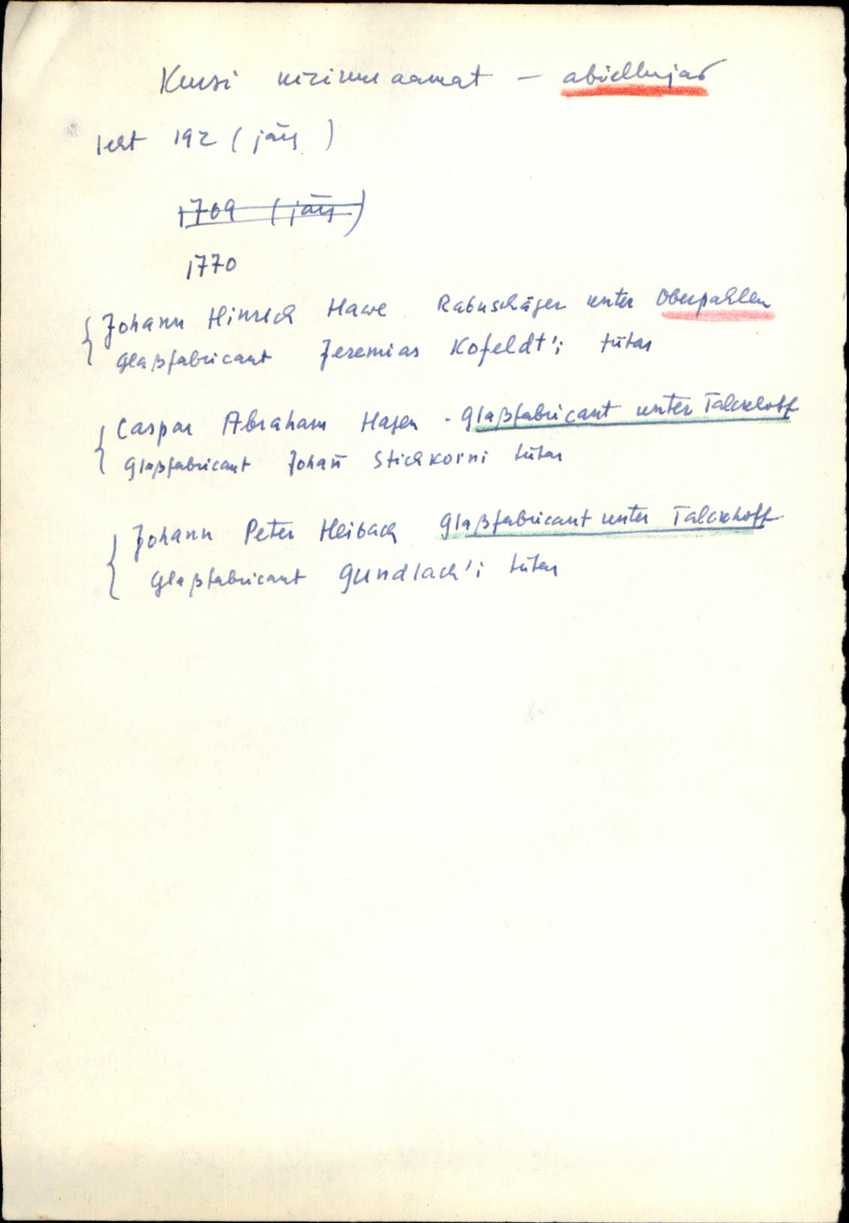 Kursi kirikuraamat - abiellujad
leht 192 (järg)
1709 (järg)
1770
Johann Hinrich Hawe Rabuschäger unter Oberpahlen
Glaßfabricant Jeremias Kofeldt'i tütar
Caspar Abraham Hagen - Glaßfabricant unter Talckhoff
Glaßfabricant Johañ Stichkorni tütar
Johann Peter Heibach Glaßfabricant unter Talckhoff
Glaßfabricant Gundlach'i tütar